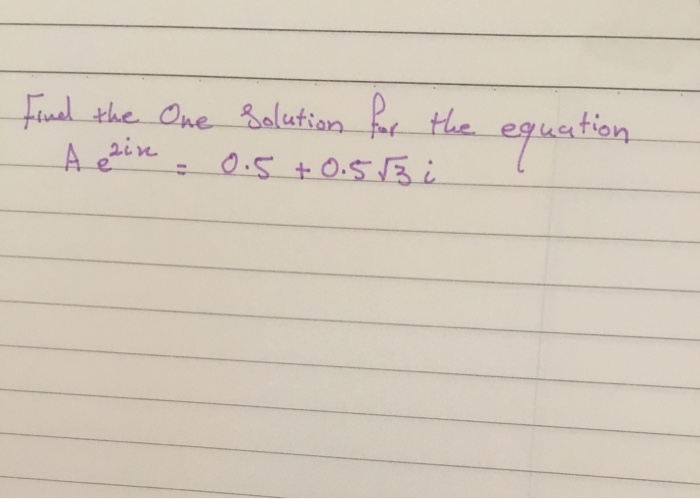 Find the One Solution for the equation
A e^{2ix} = 0.5 + 0.5 √3 i